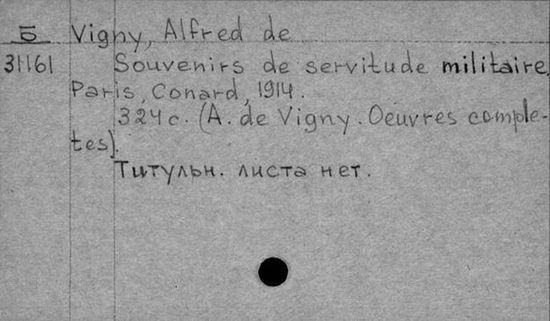 Б Vigny, Alfred de
31161 Souvenirs de servitude militaire,
Paris, Conard, 1914.
324 с. (A. de Vigny. Oeuvres comple-
tes).
Титульн. листа нет.